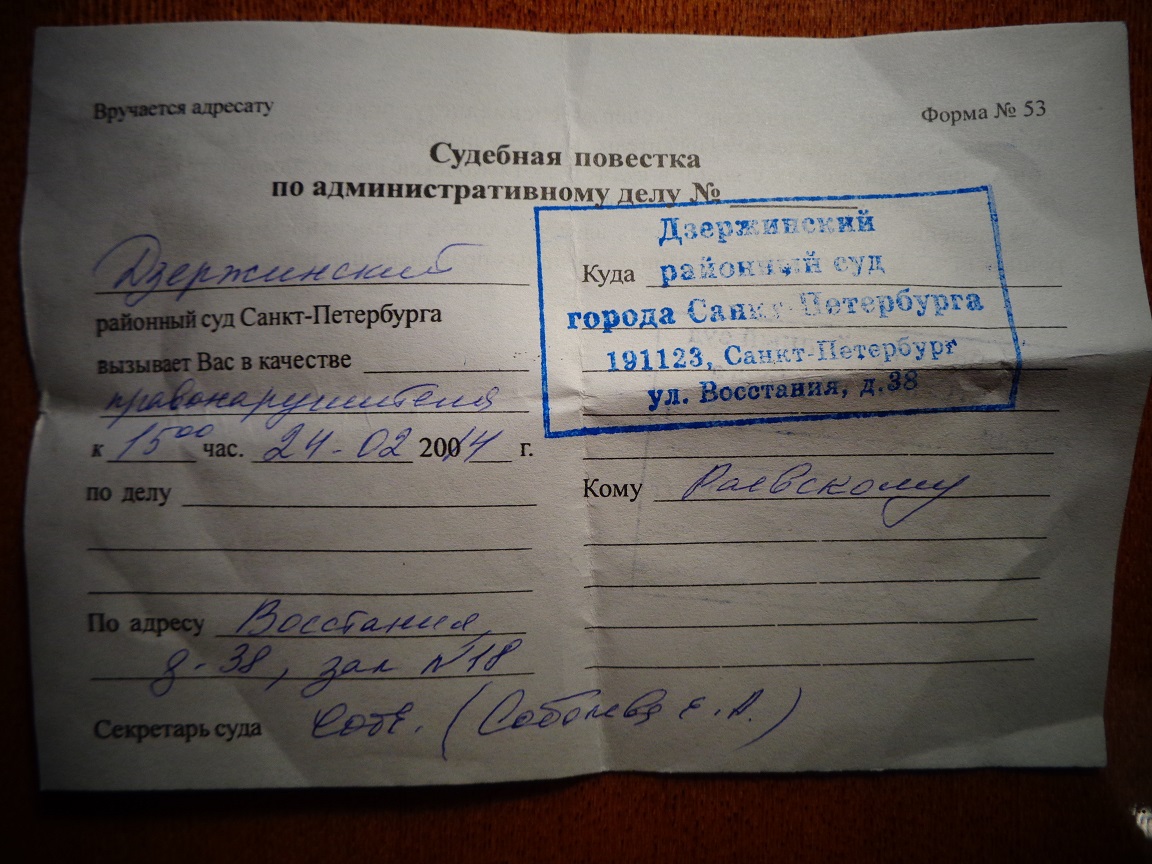 Вручается адресату
Форма № 53
Судебная повестка
по административному делу №
Дзержинский
районный суд Санкт-Петербурга
вызывает Вас в качестве
правонарушителя
к 15 00 час. 24-02 20014 г.
по делу
По адресу Восстания,
д-38, зал №18
Секретарь суда Собе. (Соболева Е.А.)
Дзержинский
Куда районный суд
города Санкт-Петербурга
191123, Санкт-Петербург
ул. Восстания, д.38
Кому Раевскому